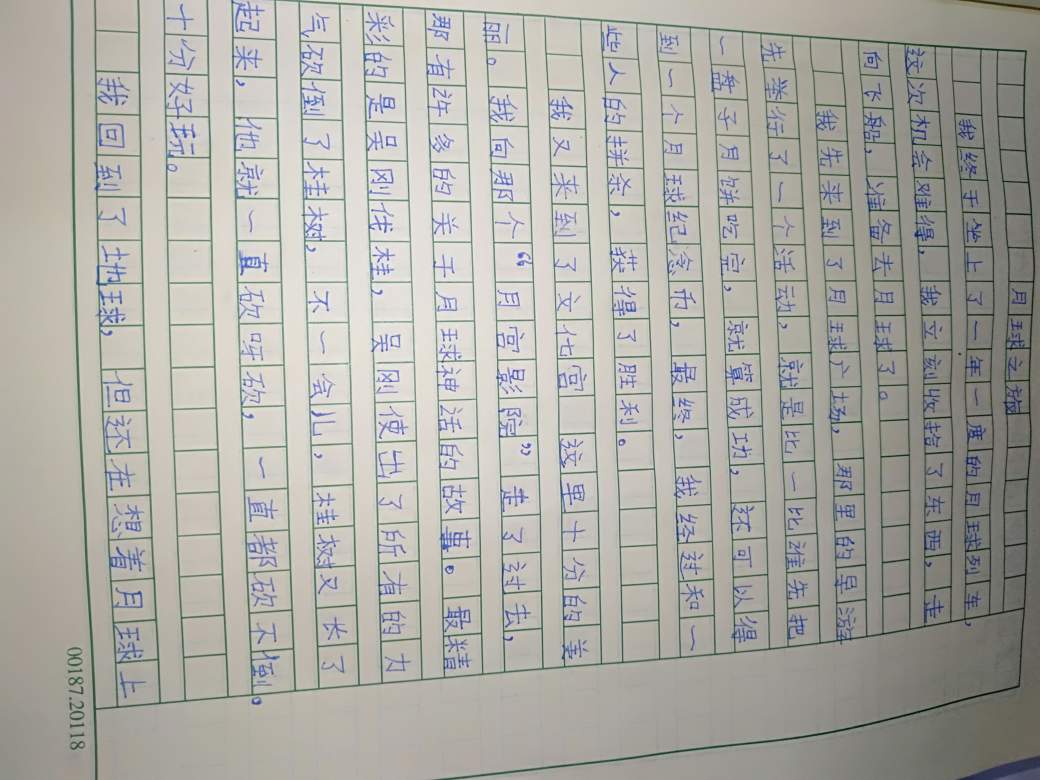 月球之旅
我终于坐上了一年一度的月球列车，
这次机会难得，我立刻收拾了东西，走
向飞船，准备去月球了。
我先来到了月球广场，那里的导游
先举行了一个活动，就是比一比谁先把
一盘子月饼吃完，就算成功，还可以得
到一个月球纪念币，最终，我经过和一
些人的拼杀，获得了胜利。
我又来到了文化宫 这里十分的美
丽。我向那个“月宫影院”走了过去，
那有许多的关于月球神话的故事。最精
彩的是吴刚伐桂，吴刚使出了所有的力
气砍倒了桂树，不一会儿，桂树又长了
起来，他就一直砍呀砍，一直都砍不倒。
十分好玩。
我回到了地球，但还在想着月球上
00187.20118